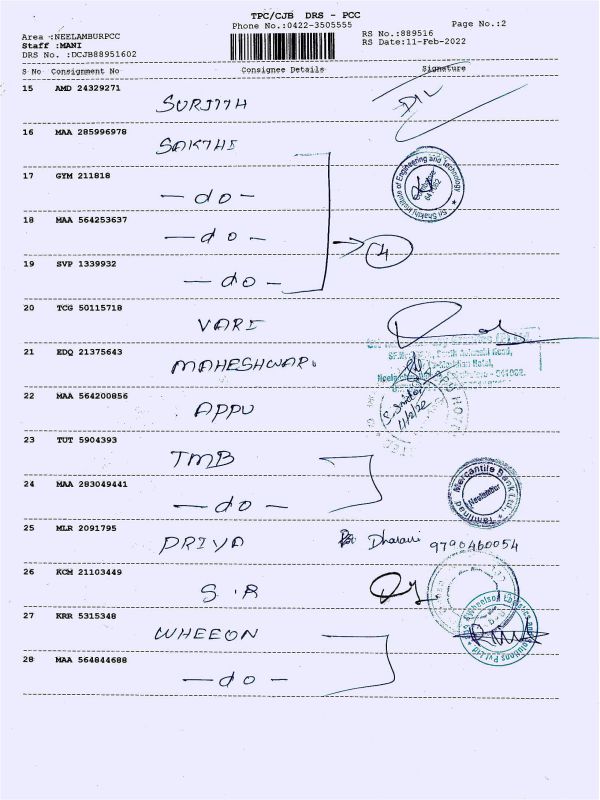 TPC/CJB DRS - PCC
Phone No.:0422-3505555
Page No.:2
Area :NEELAMBURPCC
RS No.:889516
Staff :MANI
RS Date:11-Feb-2022
DRS No. :DCJB88951602
S No Consignment No Consignee Details Signature
15 AMD 24329271
SURJITH
16 MAA 285996978
SAKTHI
Sri Shakthi Institute of Engineering and Technology
17 GYM 211818
—do—
18 MAA 564253637
—do—
4
19 SVP 1339932
—do—
20 TCG 50115718
VARI
21 EDQ 21375643
MAHESHWARI
22 MAA 564200856
APPU
11/2/22
23 TUT 5904393
TMB
24 MAA 283049441
—do—
Tamilnad Mercantile Bank Ltd.,
Neelambur
25 MLR 2091795
PRIYA
9790460054
26 KCM 21103449
S.R
27 KRR 5315348
WHEEON
28 MAA 564844688
—do—